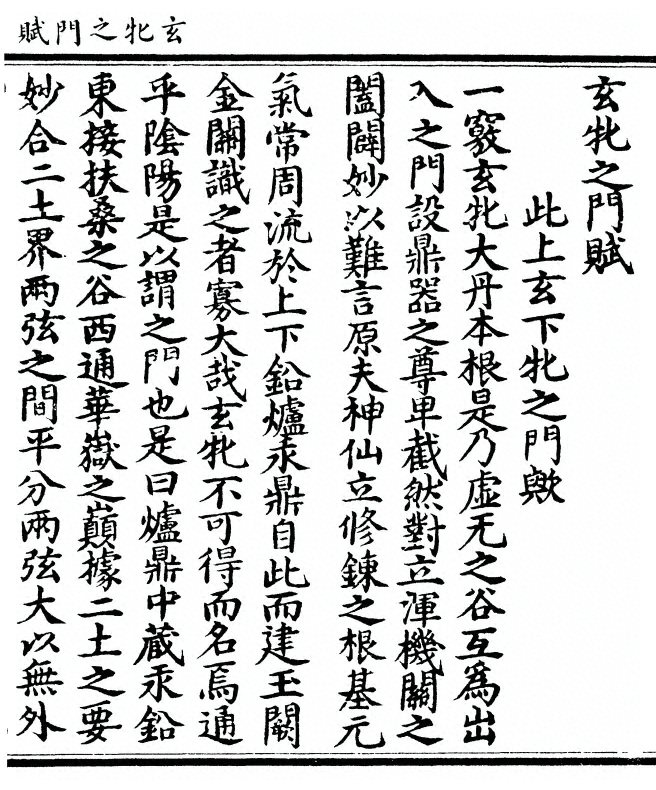 玄牝之門賦
玄牝之門賦
此上玄下牝之門歟
一竅玄牝大丹本根是乃虛无之谷互爲出
入之門設鼎器之尊卑截然對立渾機關之
闔闢妙以難言原夫神仙立修鍊之根基元
氣常周流於上下鉛爐汞鼎自此而建玉闕
金關識之者寡大哉玄牝不可得而名焉通
乎陰陽是以謂之門也是曰爐鼎中蔵汞鉛
東接扶桑之谷西通華嶽之巔據二土之要
妙合二土界兩弦之間平分兩弦大以無外